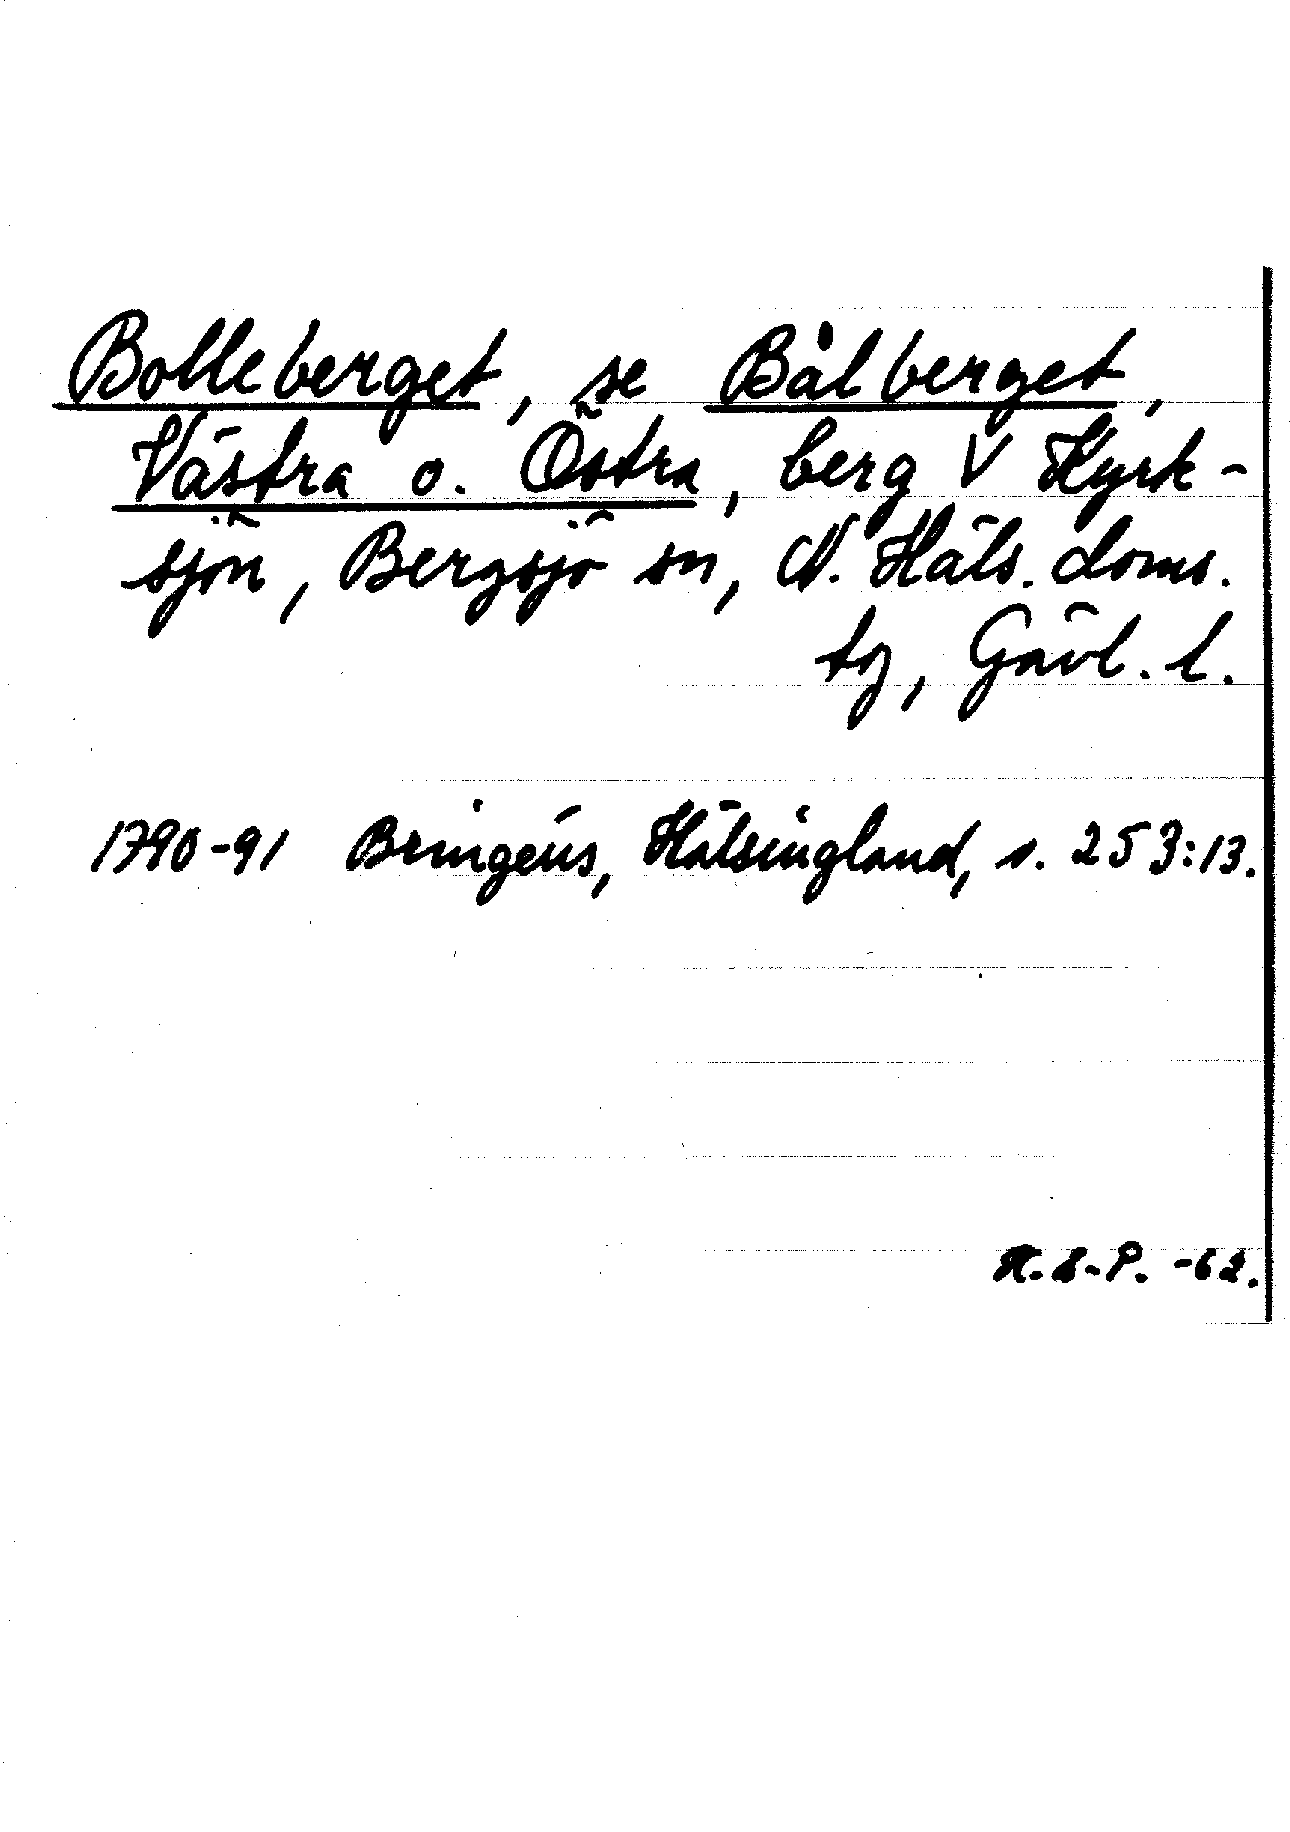 Bolleberget, se Bålberget,
Västra o. Östra, berg V Kyrk-
sjön, Bergsjö sn, N. Häls. doms.
tg, Gävl. l.
1790-91 Bringéus, Hälsingland, s. 253:13.
H. S-P. -62.